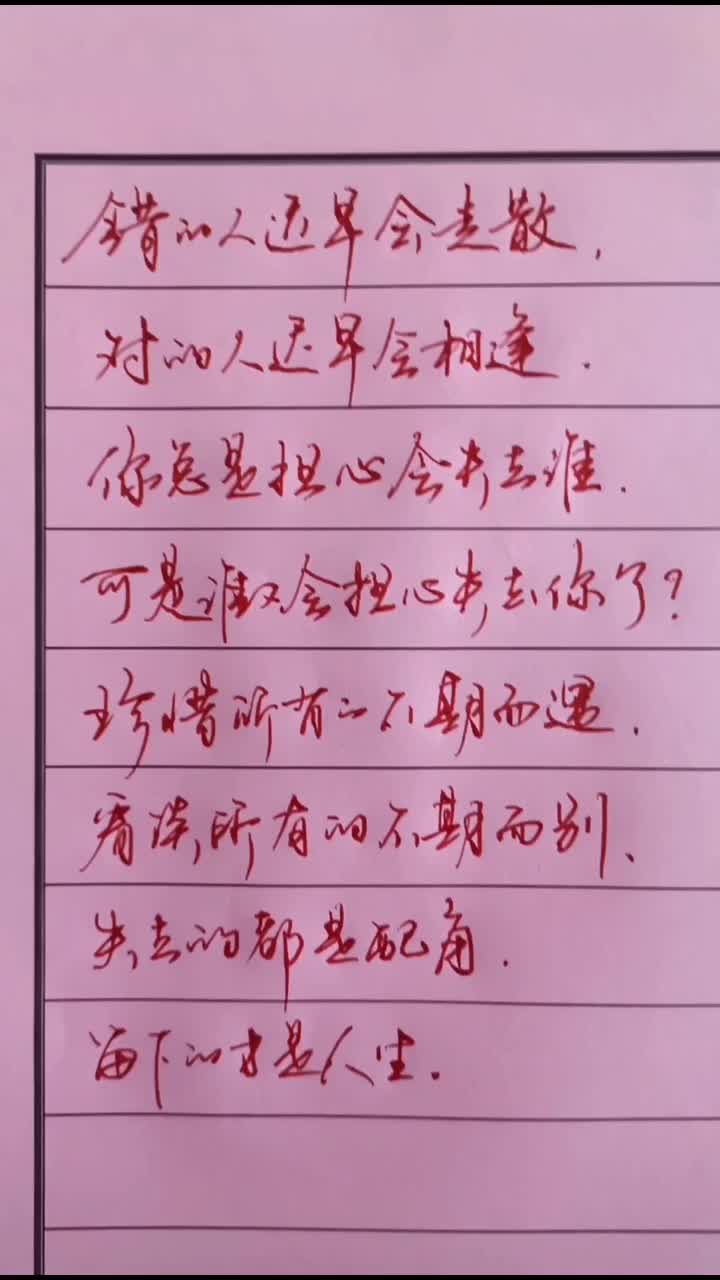 错的人迟早会走散,
对的人迟早会相逢.
你总是担心会失去谁.
可是谁又会担心失去你了?
珍惜所有的不期而遇.
看淡所有的不期而别、
失去的都是配角.
留下的才是人生.